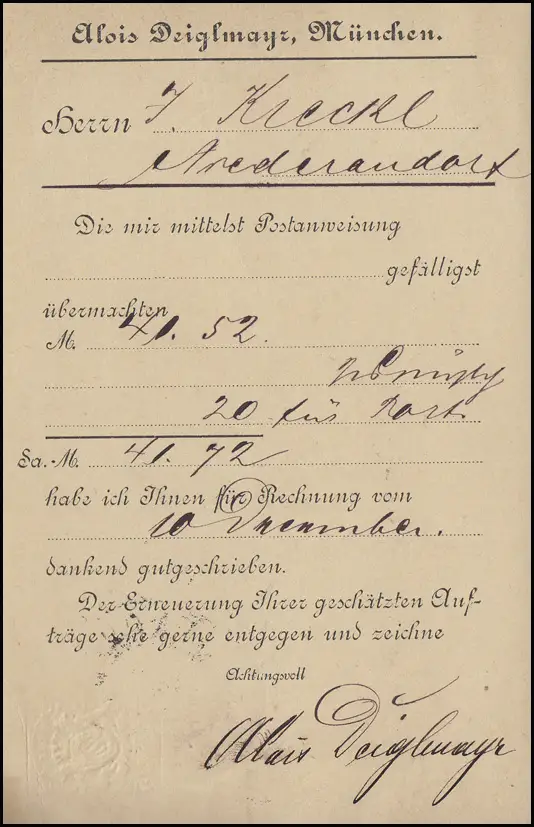 Alois Deiglmayr, München.
Herrn J. Kreckl
Niederaudorf
Die mir mittelst Postanweisung
gefälligst
übermachten
M. 41. 52.
20 für Port.
Sa. M. 41. 72
habe ich Ihnen für Rechnung vom
10 Dezember.
dankend gutgeschrieben.
Der Erneuerung Ihrer geschätzten Auf-
träge sehe gerne entgegen und zeichne
Achtungsvoll
Alois Deiglmayr